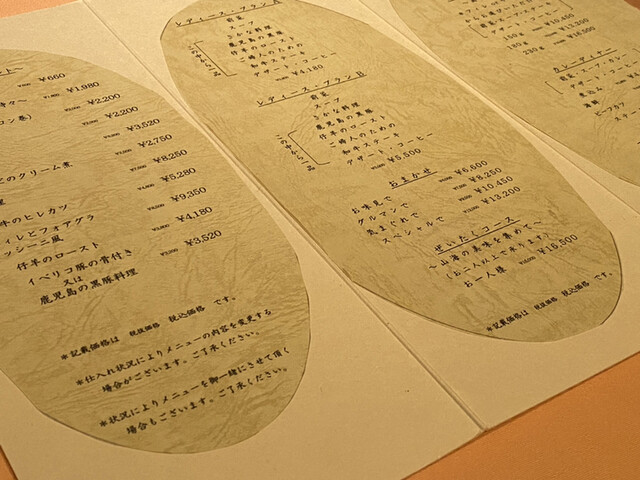 ¥660
¥1,980
¥2,200
¥2,200
¥3,520
¥2,750
¥8,250
のクリーム煮
¥5,280
牛のヒレカツ
¥9,350
ィレとフォアグラ
ッシーニ風
¥4,180
仔羊のロースト
イベリコ豚の骨付き
又は
鹿児島の黒豚料理
¥3,520
※記載価格は 税抜価格 税込価格 です。
※仕入れ状況によりメニューの内容を変更する
場合がございます。ご了承ください。
※状況によりメニューを御一緒にさせて頂く
場合もございます。ご了承ください。
レディース・プランA
前菜
スープ
さかな料理
鹿児島の黒豚
仔羊のロースト
ご婦人のための
和牛ステーキ
この中から一品
デザート・コーヒー
¥4,180
レディース・プランB
前菜
スープ
さかな料理
鹿児島の黒豚
仔羊のロースト
ご婦人のための
和牛ステーキ
この中から一品
デザート・コーヒー
¥5,500
おまかせ
お味見で ¥6,600
グルマンで ¥8,250
気まぐれで ¥10,450
スペシャルで ¥13,200
ぜいたくコース
～山海の美味を集めて～
(お二人以上で承ります)
お一人様 ¥16,500
※記載価格は 税抜価格 税込価格 です。
¥10,450
180g ¥13,200
230g ¥16,500
カレーディナー
前菜・スープ・カレー
デザート・コーヒー
煮込み
海鮮
ビーフカツ
ステー